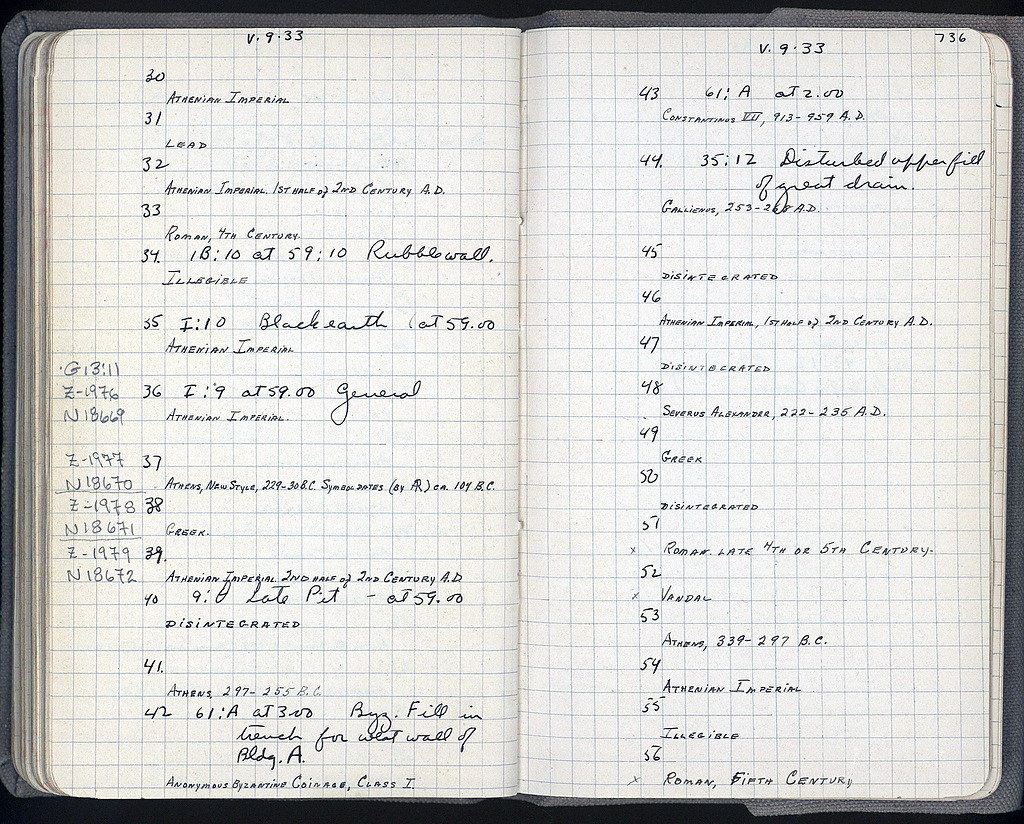 V. 9. 33
30
ATHENIAN IMPERIAL
31
LEAD
32
ATHENIAN IMPERIAL. 1ST HALF of 2ND CENTURY A.D.
33
ROMAN, 4TH CENTURY.
34. 1B:10 at 59:10 Rubble wall.
ILLEGIBLE
35 I:10 Black earth (at 59.00
ATHENIAN IMPERIAL
G 13:11
Z-1976 36 I:9 at 59.00 General
N18669 ATHENIAN IMPERIAL.
Z-1977 37
N18670 ATHENS, NEW STYLE, 229-30 B.C. SYMBOL DATES (BY AR) CA. 104 B.C.
Z-1978 38
N18671 GREEK.
Z-1979 39.
N18672 ATHENIAN IMPERIAL 2ND HALF of 2ND CENTURY A.D
40 Late Pit - at 59.00
DISINTEGRATED
41.
ATHENS, 297-255 B.C.
42 61:A at 3.00 Byz. Fill in
trench for west wall of
Bldg. A.
ANONYMOUS BYZANTINE COINAGE, CLASS I.
736
V. 9. 33
43 61:A at 2.00
CONSTANTINUS VII, 913-959 A.D.
44. 35:12 Disturbed upper fill
of great drain.
GALLIENUS, 253-268 A.D.
45
DISINTEGRATED
46
ATHENIAN IMPERIAL, 1ST HALF of 2ND CENTURY A.D.
47
DISINTEGRATED
48
SEVERUS ALEXANDER, 222-235 A.D.
49
GREEK
50
DISINTEGRATED
51
x ROMAN. LATE 4TH OR 5TH CENTURY.
52
x VANDAL
53
ATHENS, 339-297 B.C.
54
ATHENIAN IMPERIAL
55
ILLEGIBLE
56
x ROMAN, FIFTH CENTURY